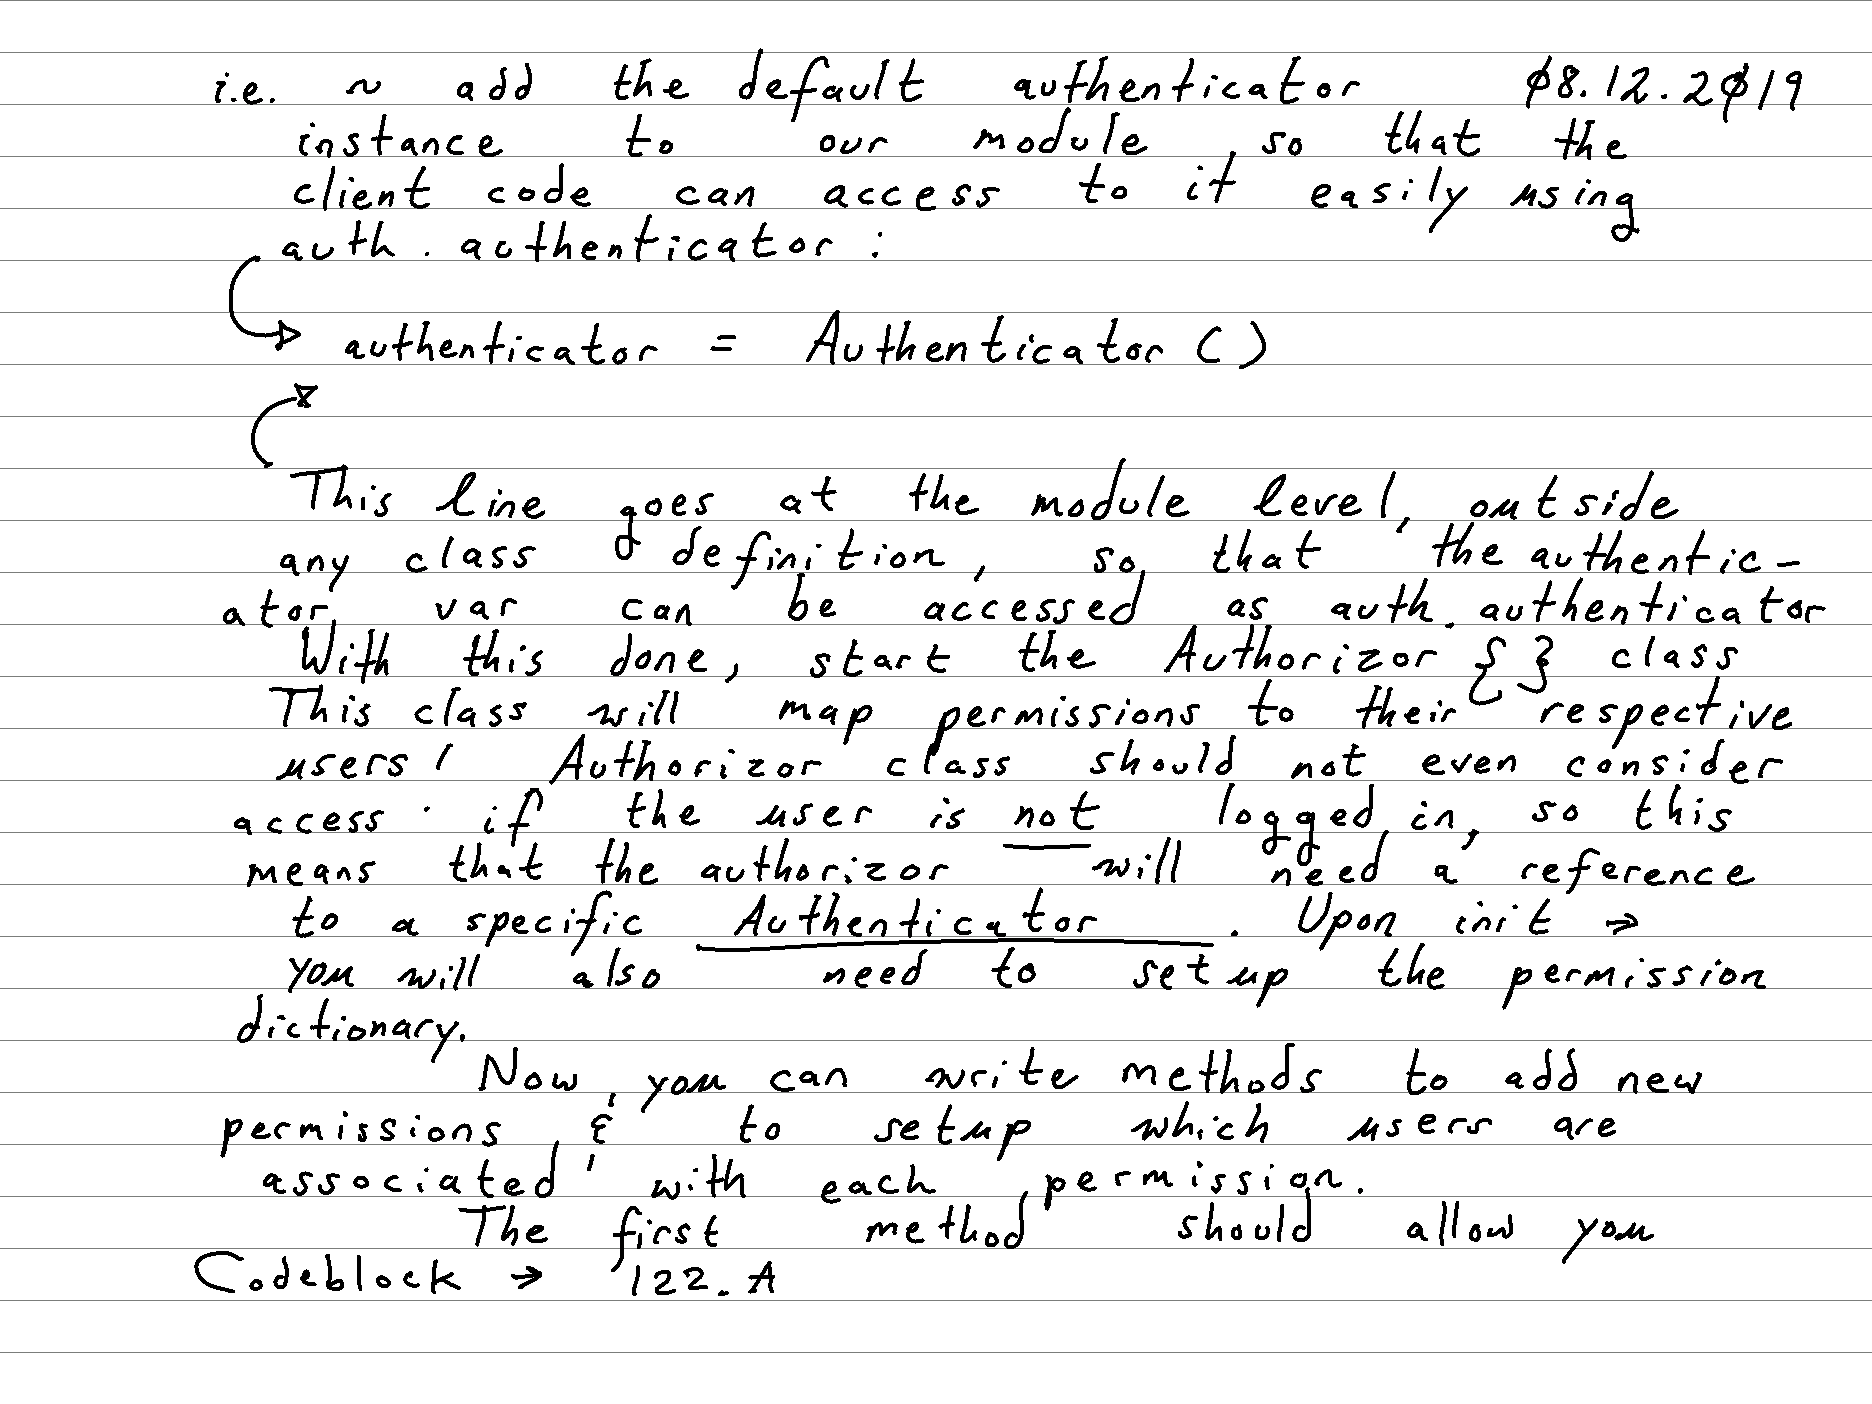 i.e. ~ add the default authenticator 08.12.2019
instance to our module, so that the
client code can access to it easily using
auth.authenticator:
authenticator = Authenticator()
This line goes at the module level, outside
any class definition, so that the authentic-
ator var can be accessed as auth.authenticator
With this done, start the Authorizor {} class
This class will map permissions to their respective
users! Authorizor class should not even consider
access if the user is not logged in, so this
means that the authorizor will need a reference
to a specific Authenticator. Upon init →
you will also need to setup the permission
dictionary.
Now, you can write methods to add new
permissions, & to setup which users are
associated with each permission.
The first method should allow you
Codeblock → 122.A